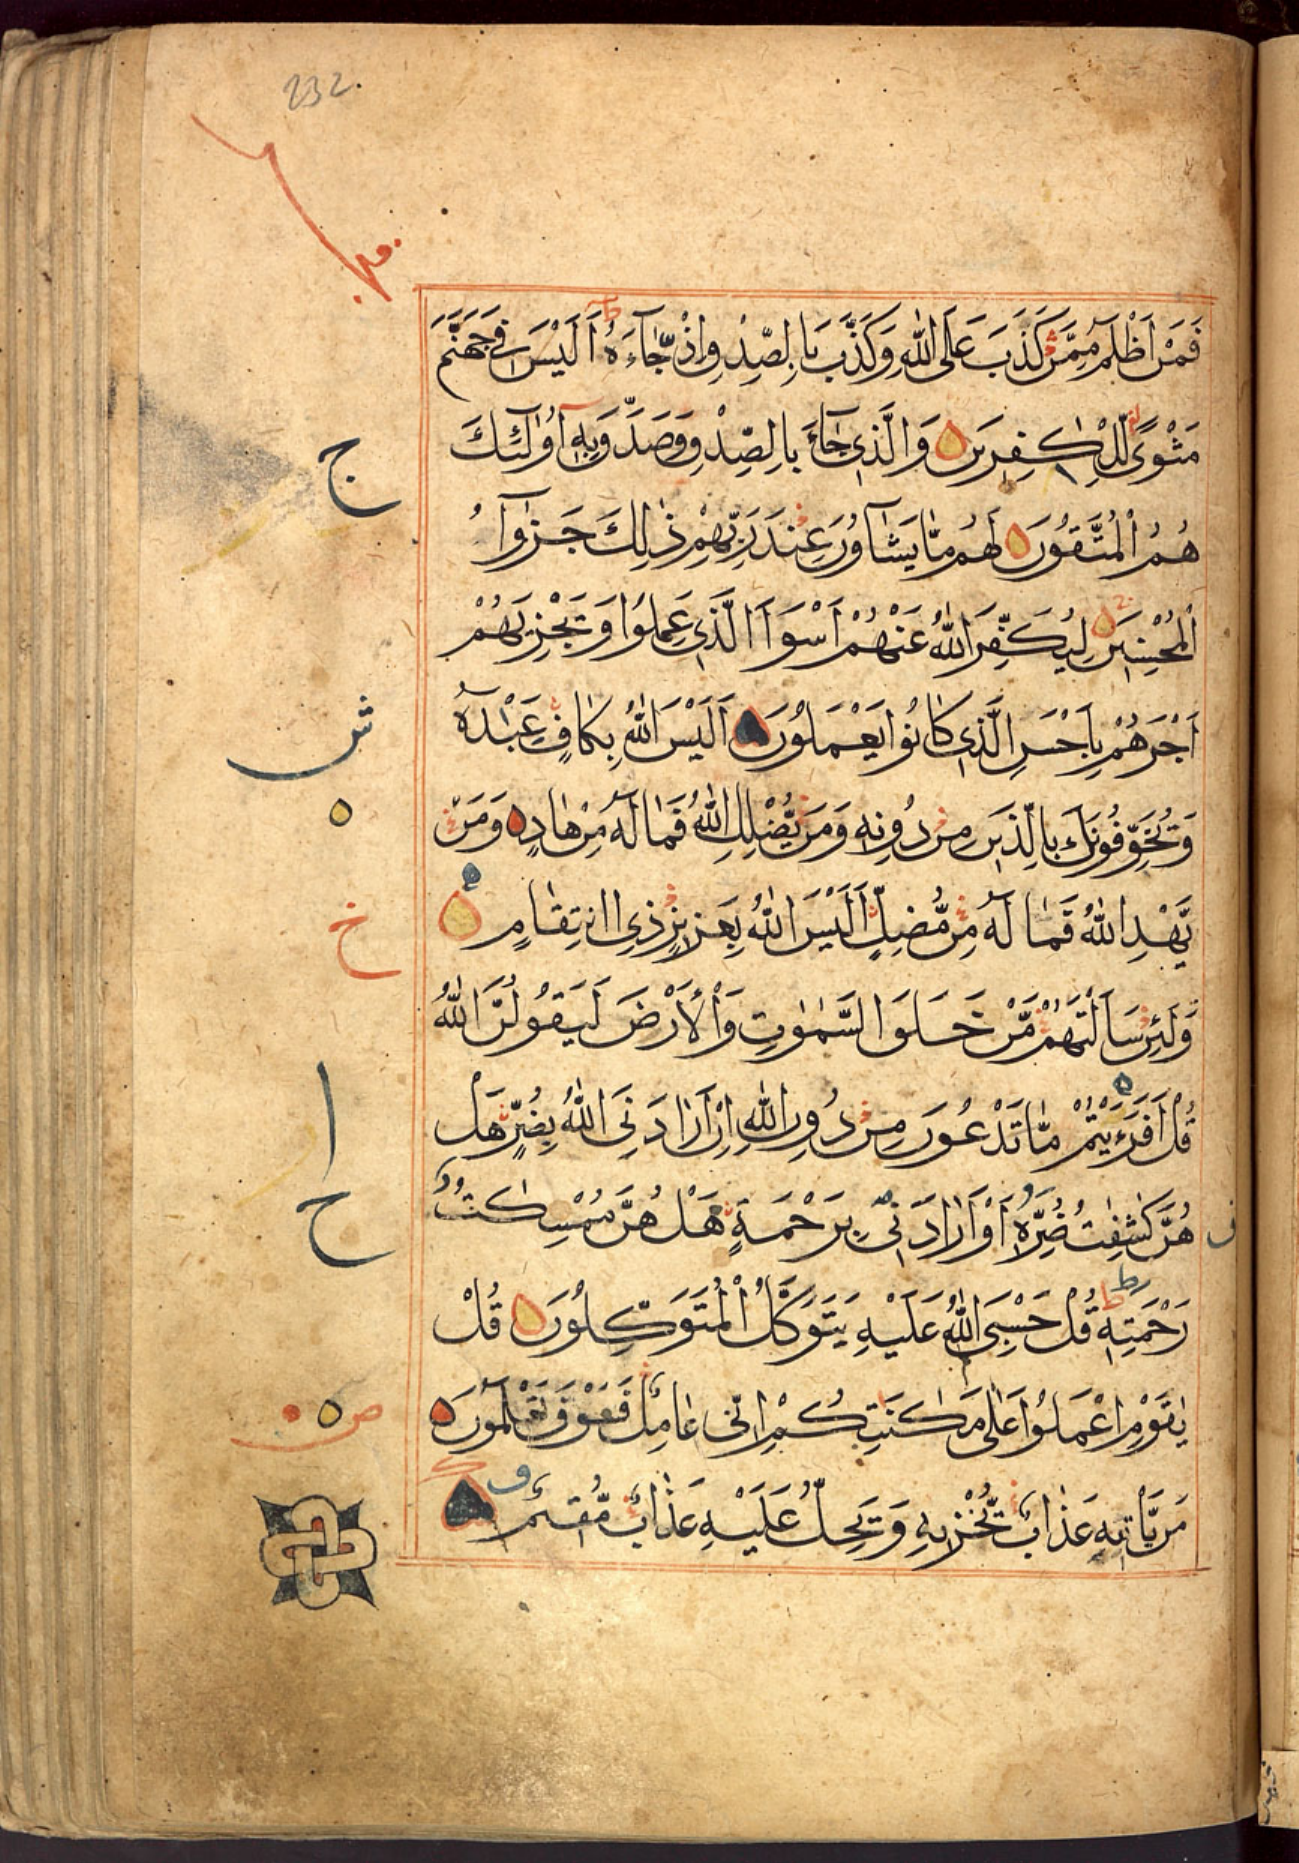 232.
فَمَنْ اَظْلَمُ مِمَّنْ كَذَبَ عَلَى اللّٰهِ وَكَذَّبَ بِالصِّدْقِ اِذْ جَآءَهُ اَلَيْسَ فِى جَهَنَّمَ
مَثْوًى لِّلْكٰفِرِيْنَ وَالَّذِى جَآءَ بِالصِّدْقِ وَصَدَّقَ بِهٖ اُولٰٓئِكَ
هُمُ الْمُتَّقُوْنَ لَهُمْ مَّا يَشَآءُوْنَ عِنْدَ رَبِّهِمْ ذٰلِكَ جَزٰٓؤُا
الْمُحْسِنِيْنَ لِيُكَفِّرَ اللّٰهُ عَنْهُمْ اَسْوَاَ الَّذِى عَمِلُوْا وَيَجْزِيَهُمْ
اَجْرَهُمْ بِاَحْسَنِ الَّذِى كَانُوْا يَعْمَلُوْنَ اَلَيْسَ اللّٰهُ بِكَافٍ عَبْدَهٗ
وَيُخَوِّفُوْنَكَ بِالَّذِيْنَ مِنْ دُوْنِهٖ وَمَنْ يُّضْلِلِ اللّٰهُ فَمَا لَهٗ مِنْ هَادٍ وَمَنْ
يَّهْدِ اللّٰهُ فَمَا لَهٗ مِنْ مُّضِلٍّ اَلَيْسَ اللّٰهُ بِعَزِيْزٍ ذِى انْتِقَامٍ
وَلَئِنْ سَاَلْتَهُمْ مَّنْ خَلَقَ السَّمٰوٰتِ وَالْاَرْضَ لَيَقُوْلُنَّ اللّٰهُ
قُلْ اَفَرَءَيْتُمْ مَّا تَدْعُوْنَ مِنْ دُوْنِ اللّٰهِ اِنْ اَرَادَنِىَ اللّٰهُ بِضُرٍّ هَلْ
هُنَّ كٰشِفٰتُ ضُرِّهٖ اَوْ اَرَادَنِىْ بِرَحْمَةٍ هَلْ هُنَّ مُمْسِكٰتُ
رَحْمَتِهٖ قُلْ حَسْبِىَ اللّٰهُ عَلَيْهِ يَتَوَكَّلُ الْمُتَوَكِّلُوْنَ قُلْ
يٰقَوْمِ اعْمَلُوْا عَلٰى مَكَانَتِكُمْ اِنِّى عَامِلٌ فَسَوْفَ تَعْلَمُوْنَ
مَنْ يَّاْتِيْهِ عَذَابٌ يُّخْزِيْهِ وَيَحِلُّ عَلَيْهِ عَذَابٌ مُّقِيْمٌ